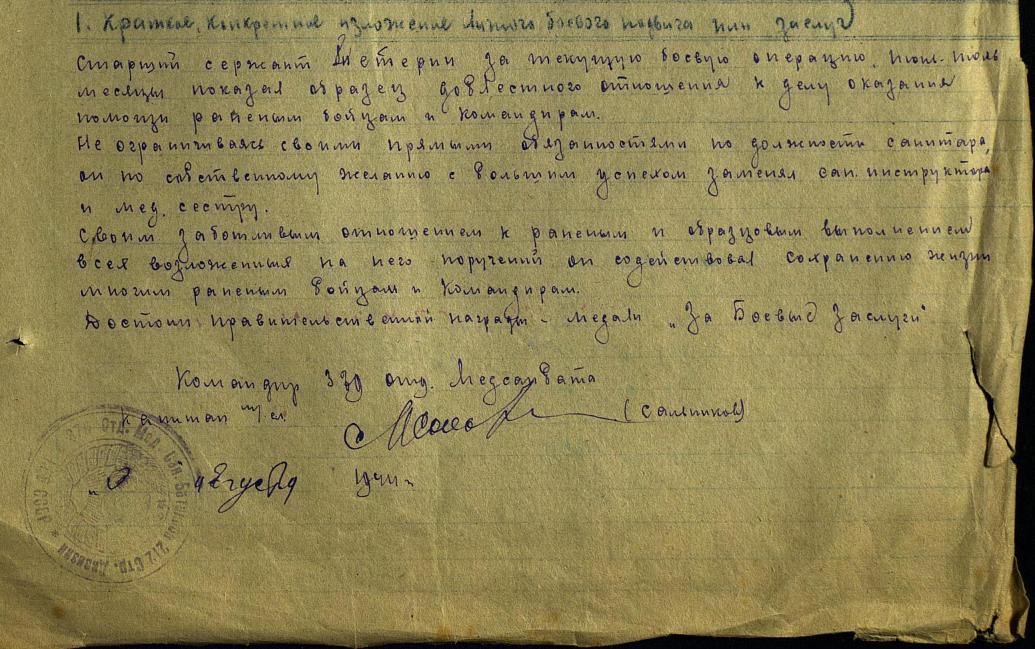 I. Краткое, конкретное изложение личного боевого подвига или заслуг
Старший сержант за текущую боевую операцию, июн.-июль
месяцы показал образец доблестного отношения к делу оказания
помощи раненым бойцам и командирам.
Не ограничиваясь своими прямыми обязанностями по должности санитара,
он по собственному желанию с большим успехом заменял сан. инструктора
и мед. сестру.
Своим заботливым отношением к раненым и образцовым выполнением
всех возложенных на него поручений он содействовал сохранению жизни
многим раненым бойцам и командирам.
Достоин правительственной награды - медали „За Боевые Заслуги"
Командир отд. Медсанбата
Капитан м/сл. (Сальников)
августа
Отд. Мед. Сан. Батальон Стр. Дивизии